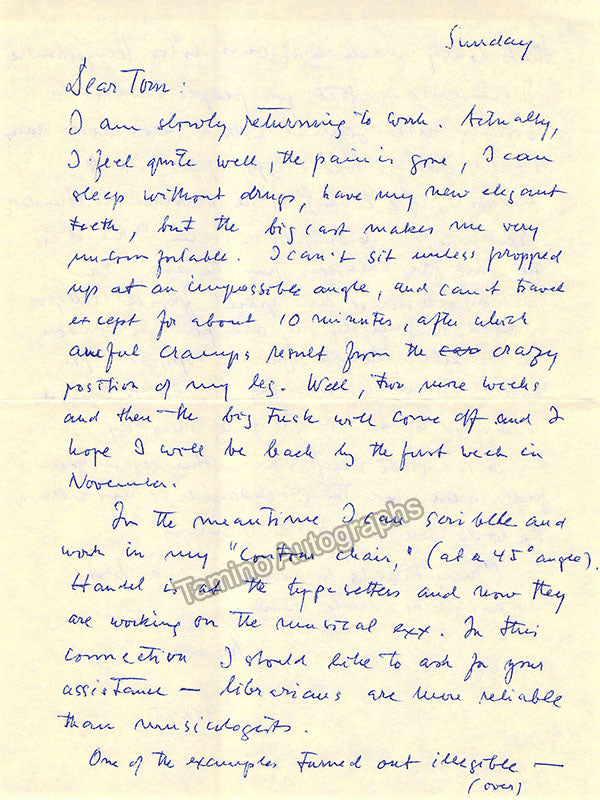 Sunday
Dear Tom:
I am slowly returning to work. Actually,
I feel quite well, the pain is gone, I can
sleep without drugs, have my new elegant
teeth, but the big cast makes me very
uncomfortable. I can't sit unless propped
up at an impossible angle, and can't travel
except for about 10 minutes, after which
awful cramps result from the crazy
position of my leg. Well, two more weeks
and then the big trunk will come off and I
hope I will be back by the first week in
November.
In the meantime I can scribble and
work in my "Contour chair," (at a 45° angle).
Handel is at the typesetters and now they
are working on the musical exx. In this
connection I should like to ask for your
assistance — librarians are more reliable
than musicologists.
One of the examples turned out illegible —
(over)
Tamino Autographs